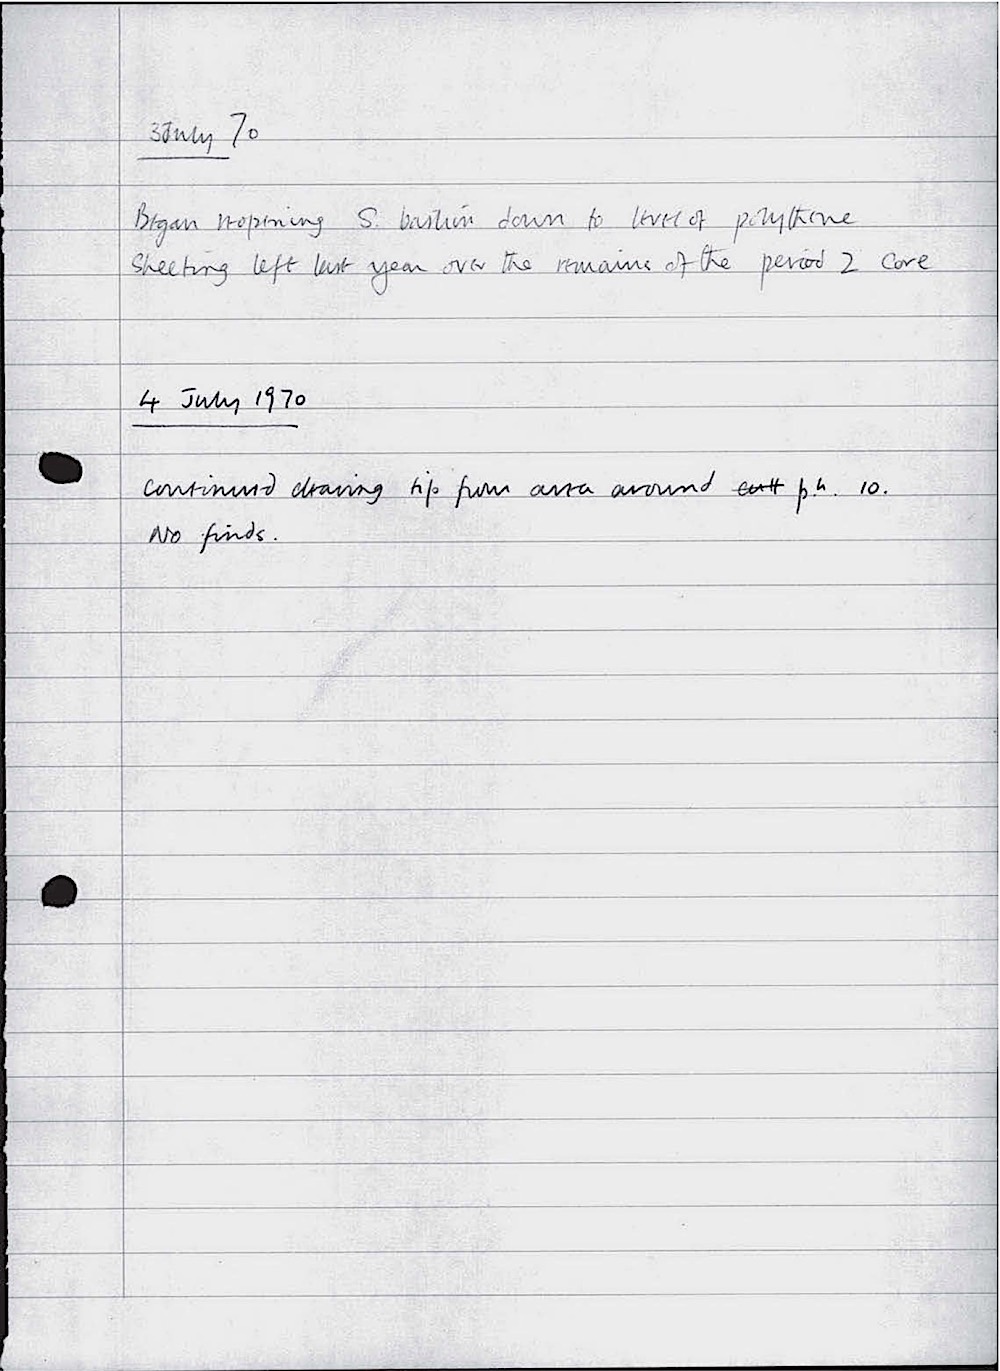 3 July 70
Began reopening S. bastion down to level of polythene
sheeting left last year over the remains of the period 2 core
4 July 1970
Continued clearing tip from area around p.h. 10.
No finds.